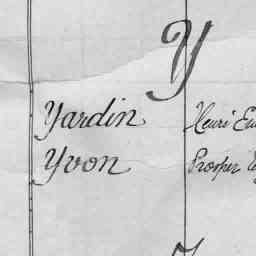 Y
Yardin Henri
Yvon Prosper